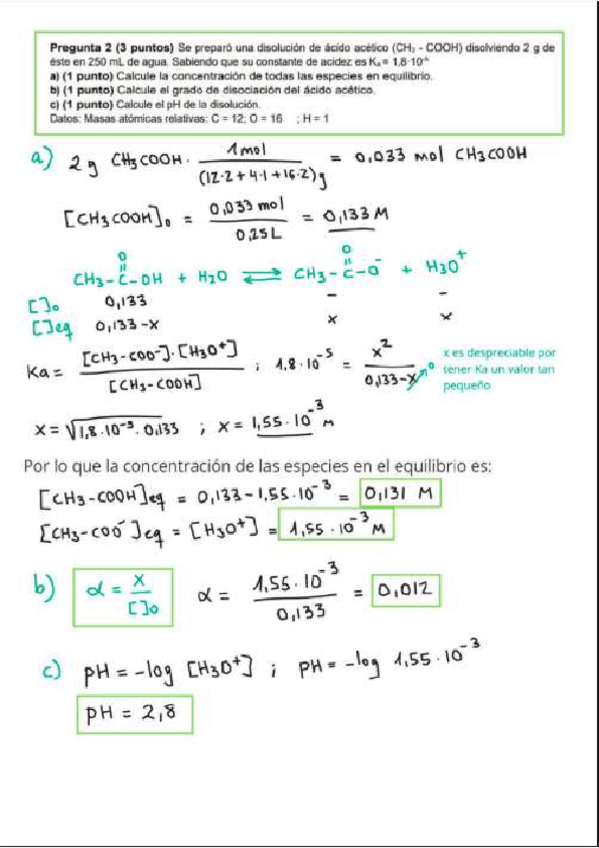 Pregunta 2 (3 puntos) Se preparó una disolución de ácido acético (CH₃ - COOH) disolviendo 2 g de
éste en 250 mL de agua. Sabiendo que su constante de acidez es Kₐ = 1,8·10⁻⁵
a) (1 punto) Calcule la concentración de todas las especies en equilibrio.
b) (1 punto) Calcule el grado de disociación del ácido acético.
c) (1 punto) Calcule el pH de la disolución.
Datos: Masas atómicas relativas: C = 12; O = 16 ; H = 1
a) 2 g CH3COOH · 1 mol / (12·2 + 4·1 + 16·2) g = 0,033 mol CH3COOH
[CH3COOH]₀ = 0,033 mol / 0,25 L = 0,133 M
O O
CH3-C-OH + H2O ⇌ CH3-C-O⁻ + H3O⁺
[ ]₀ 0,133 - -
[ ]eq 0,133-x x x
Ka = [CH3-COO⁻]·[H3O⁺] / [CH3-COOH] ; 1,8·10⁻⁵ = x² / 0,133-x → 0
x es despreciable por
tener Ka un valor tan
pequeño
x = √1,8·10⁻⁵·0,133 ; x = 1,55·10⁻³ M
Por lo que la concentración de las especies en el equilibrio es:
[CH3-COOH]eq = 0,133-1,55·10⁻³ = 0,131 M
[CH3-COO⁻]eq = [H3O⁺] = 1,55·10⁻³ M
b) α = x / [ ]₀ α = 1,55·10⁻³ / 0,133 = 0,012
c) pH = -log [H3O⁺] ; pH = -log 1,55·10⁻³
pH = 2,8